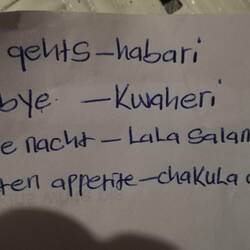 gehts - habari
bye - Kwaheri
e nacht - Lala Salam
ten appetite - chakula